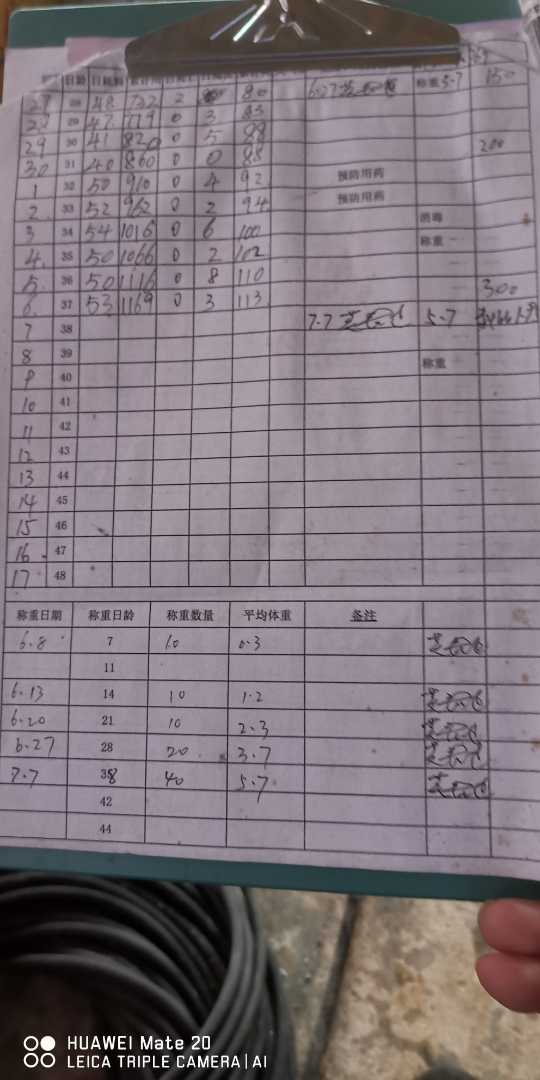 日龄 日耗料
27 28 48 722 2 80 6.27 称重 5.7 150
28 29 47 779 0 3 83
29 30 41 820 0 5 88
30 31 40 860 0 0 88 200
1 32 50 910 0 4 92 预防用药
2 33 52 962 0 2 94 预防用药
3 34 54 1016 0 6 100 消毒
4 35 50 1066 0 2 102 称重
5 36 50 1116 0 8 110
6 37 53 1169 0 3 113 300
7 38 7.7 5.7
8 39
9 40 称重
10 41
11 42
12 43
13 44
14 45
15 46
16 47
17 48
称重日期 称重日龄 称重数量 平均体重 备注
6.8 7 10 0.3
11
6.13 14 10 1.2
6.20 21 10 2.3
6.27 28 20 3.7
7.7 38 40 5.7
42
44
HUAWEI Mate 20
LEICA TRIPLE CAMERA | AI